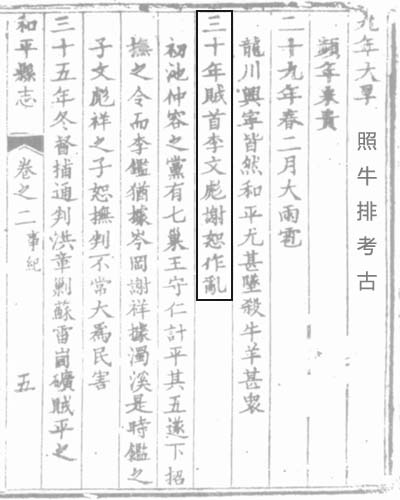 九年大旱
頴年米貴
二十九年春二月大雨雹
龍川興寧皆然和平尤甚墜殺牛羊甚衆
三十年賊首李文彪謝恕作亂
初池仲容之黨有七巢王守仁計平其五遂下招
撫之令而李鑑猶據岑岡謝祥據濁溪是時鑑之
子文彪祥之子恕撫判不常大為民害
三十五年冬督捕通判洪章剿蘇雷崗礦賊平之
和平縣志
卷之二
事紀
五
照牛排考古